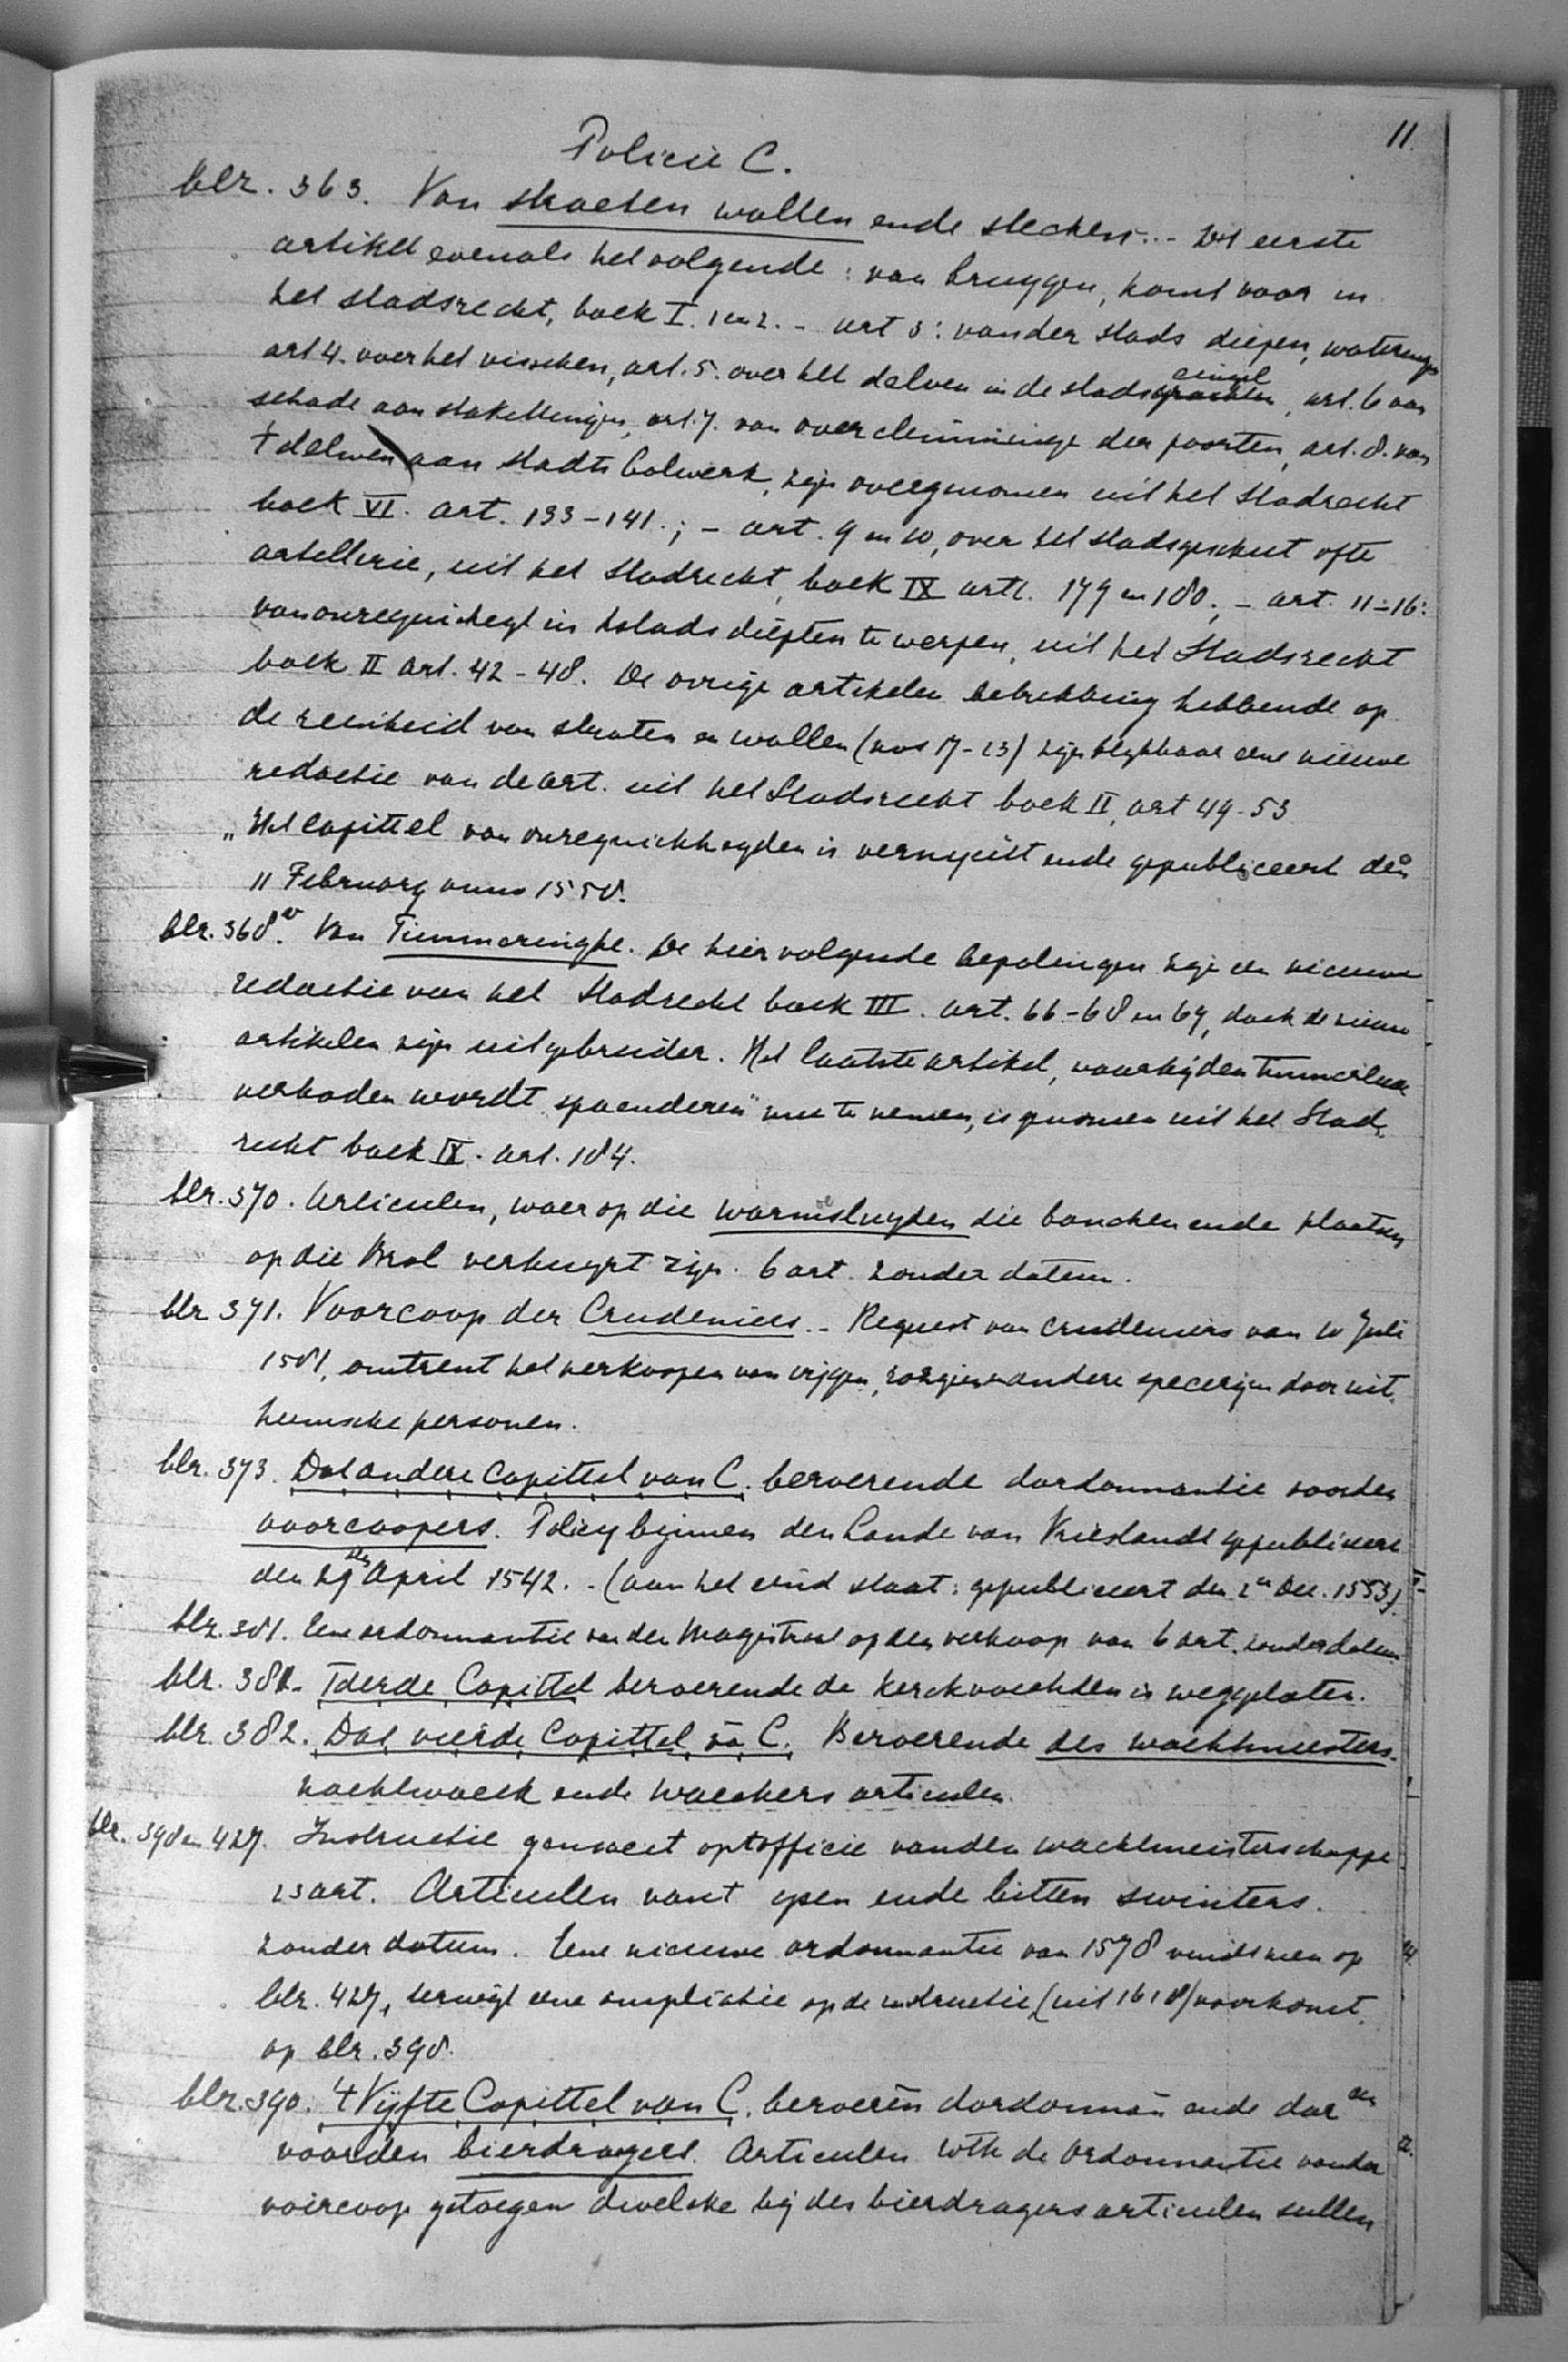 11.
Policie C.
blz. 363. Van straeten wallen ende stecken... Het eerste
artikel evenals het volgende: van bruggen, komt voor in
het stadsrecht, boek I. 1 en 2. - art 3: vander stads diepen, waterings
art 4. over het visschen, art. 5. over het delven in de stadsgrachten singel, art. 6 van
schade aan staketteringen, art. 7. van overclemminge der poorten, art. 8. van
t delven aan stadts bolwerk, zijn overgenomen uit het Stadrecht
boek VI. art. 133-141.; - art. 9 en 10, over het stadsgeschut ofte
artellerie, uit het Stadrecht, boek IX artt. 179 en 180. - art. 11-16:
van onreguicheyt in tstads diepten te werpen, uit het Stadsrecht
boek II art. 42-48. De overige artikelen betrekking hebbende op
de reinheid van straten en wallen (nos 17-23) zijn blijkbaar eene nieuwe
redactie van de art. uit het Stadsrecht boek II, art 49-53
„Het Capittel van onreguickheyden is vernyeut ende gepubliceert den
11 February anno 1558.
blz. 368v. Van Timmeringhe. De hier volgende bepalingen zijn een nieuwe
redactie van het Stadrecht boek III. art. 66-68 en 69, doch de nieuwe
artikelen zijn uitgebreider. Het laatste artikel, waarbij den timmerlui
verboden wordt „spaenderen" mee te nemen, is genomen uit het Stad-
recht boek IX. art. 184.
blz. 370. Articulen, waer op die warmsluyden die bancken ende plaatsen
op die Brol verhuyrt zijn. 6 art. zonder datum.
blz 371. Voorcoop der Crudeniers. - Request van crudeniers van 10 Juli
1581, omtrent het verkoopen van vijgen, rozijnen andere specerijen door uit-
heemsche personen.
blz. 373. Dat andere Capittel van C. beroerende dordonnantie voorden
voorcoopers. Policy bynnen den Lande van Vrieslandt gepubliceert
den 29sten April 1542. - (aan het eind staat: gepubliceert den 2en Dec. 1553).
blz. 381. Eene ordonnantie van den Magistraat op den verkoop van 6 art. zonder datum
blz. 381. Tderde Capittel beroerende de kerckvoechden is weggelaten.
blz. 382. Dat vierde Capittel vã C. Beroerende des wachtmeesters-
nachtwaeck ende waeckers articulen.
blz. 398 en 427. Instructie gemaect opt officie vanden wachtmeisterschappe
23 art. Articulen vant ysen ende bitten swinters.
zonder datum. Eene nieuwe ordonnantie van 1578 vindt men op
blz. 427, terwijl eene ampliatie op de instructie (uit 1618) voorkomt
op blz. 398.
blz. 390. 't Vijfte Capittel van C. beroerēn dordonnān ende dar
voorden bierdragers. Articulen wth de Ordonnantie vander
voircoop getoegen dwelcke bij des bierdragers articulen sullen